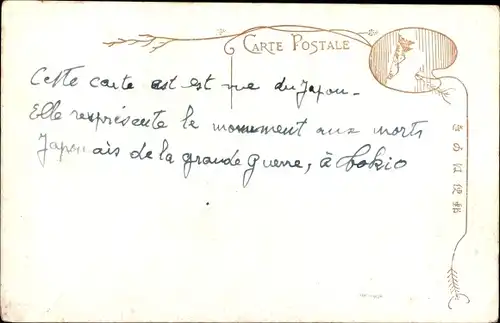 CARTE POSTALE
Cette carte ast est vue du Japon -
Elle représente le monument aux morts
Japonais de la grande Guerre, à Tokio